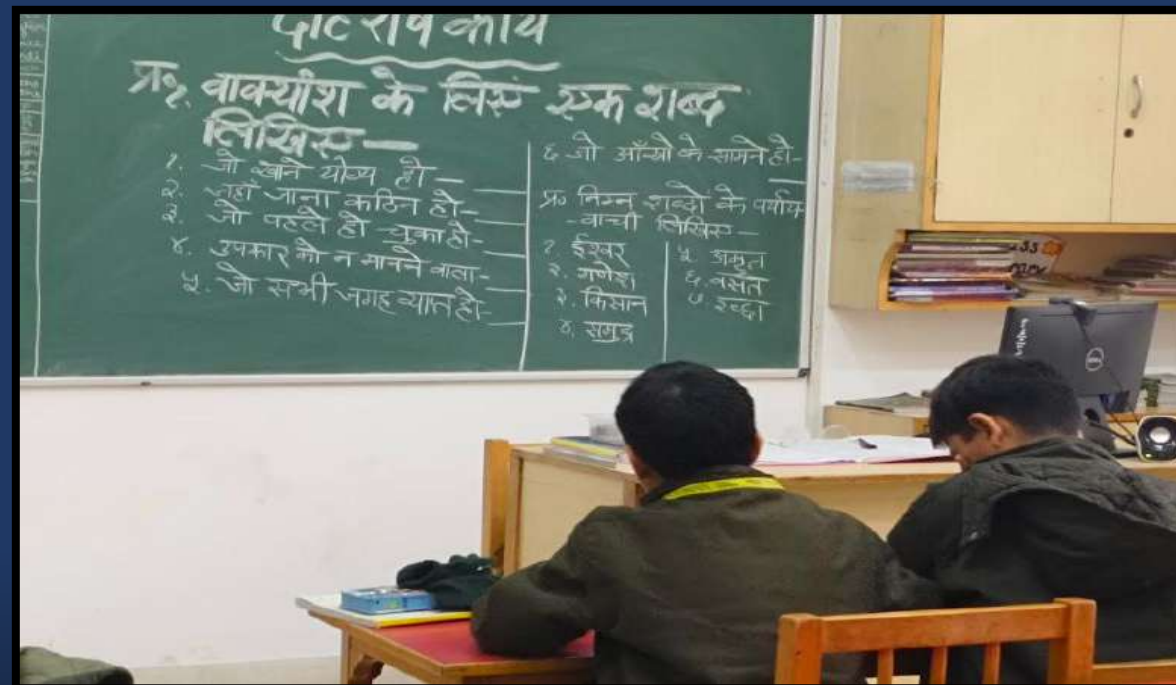 कार्य
प्र१. वाक्यांश के लिए एक शब्द
लिखिए —
१. जो खाने योग्य हो —
२. जहाँ जाना कठिन हो —
३. जो पहले हो चुका हो —
४. उपकार को न मानने वाला —
५. जो सभी जगह व्याप्त हो —
६ जो आँखों के सामने हो —
प्र० निम्न शब्दों के पर्याय
-वाची लिखिए —
१ ईश्वर
२. गणेश
३. किसान
४. समुद्र
५ अमृत
६. वसंत
७. इच्छा
DELL